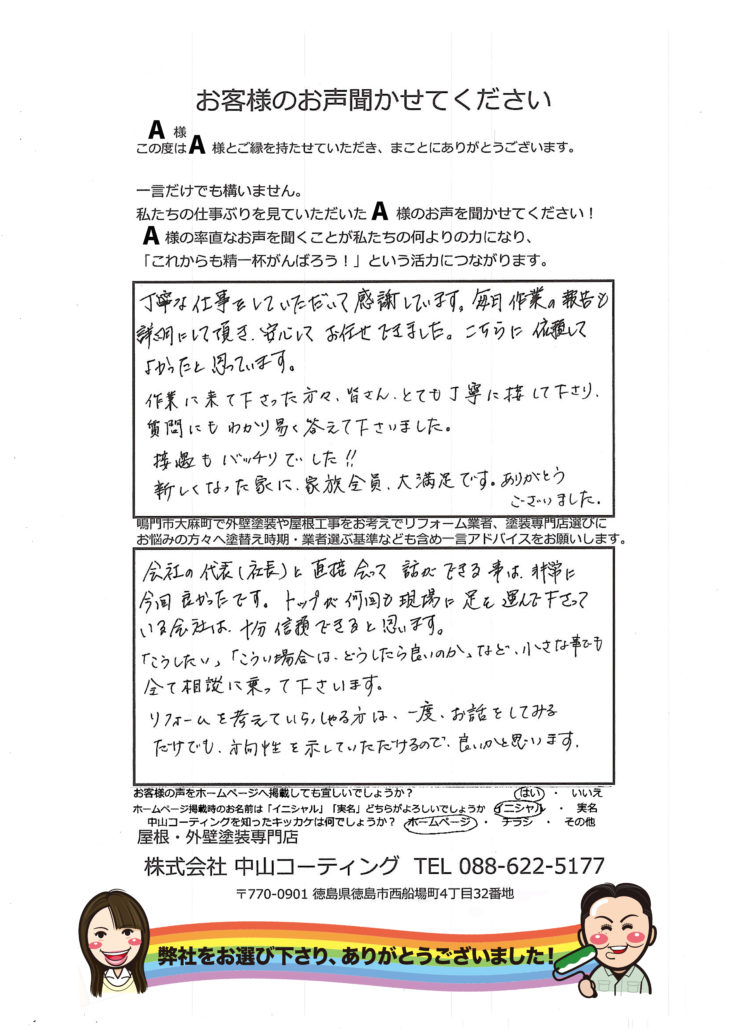 お客様のお声聞かせてください
A 様
この度はA 様とご縁を持たせていただき、まことにありがとうございます。
一言だけでも構いません。
私たちの仕事ぶりを見ていただいた A 様のお声を聞かせてください！
A 様の率直なお声を聞くことが私たちの何よりの力になり、
「これからも精一杯がんばろう！」という活力につながります。
丁寧な仕事をしていただいて感謝しています。毎日作業の報告も
説明にして頂き、安心して お任せできました。こちらに 依頼して
よかったと思っています。
作業に来て下さった方々、皆さん、とても丁寧に接して下さり、
質問にもわかり易く答えて下さいました。
接遇もバッチリでした!!
新しくなった家に、家族全員、大満足です。ありがとう
ございました。
鳴門市大麻町で外壁塗装や屋根工事をお考えでリフォーム業者、塗装専門店選びに
お悩みの方々へ塗替え時期・業者選ぶ基準なども含め一言アドバイスをお願いします。
会社の代表(社長)と直接会って 話ができる事は、非常に
今回良かったです。トップが何回も現場に足を運んで下さって
いる会社は、十分信頼できると思います。
「こうしたい」「こういう場合は、どうしたら良いのか」など、小さな事でも
全て相談に乗って下さいます。
リフォームを考えていらっしゃる方は、一度、お話をしてみる
だけでも、方向性を示していただけるので、良いかと思います。
お客様の声をホームページへ掲載しても宜しいでしょうか？ はい ・ いいえ
ホームページ掲載時のお名前は「イニシャル」「実名」どちらがよろしいでしょうか イニシャル ・ 実名
中山コーティングを知ったキッカケは何でしょうか？ ホームページ ・ チラシ ・ その他
屋根・外壁塗装専門店
株式会社 中山コーティング TEL 088-622-5177
〒770-0901 徳島県徳島市西船場町4丁目32番地
弊社をお選び下さり、ありがとうございました！